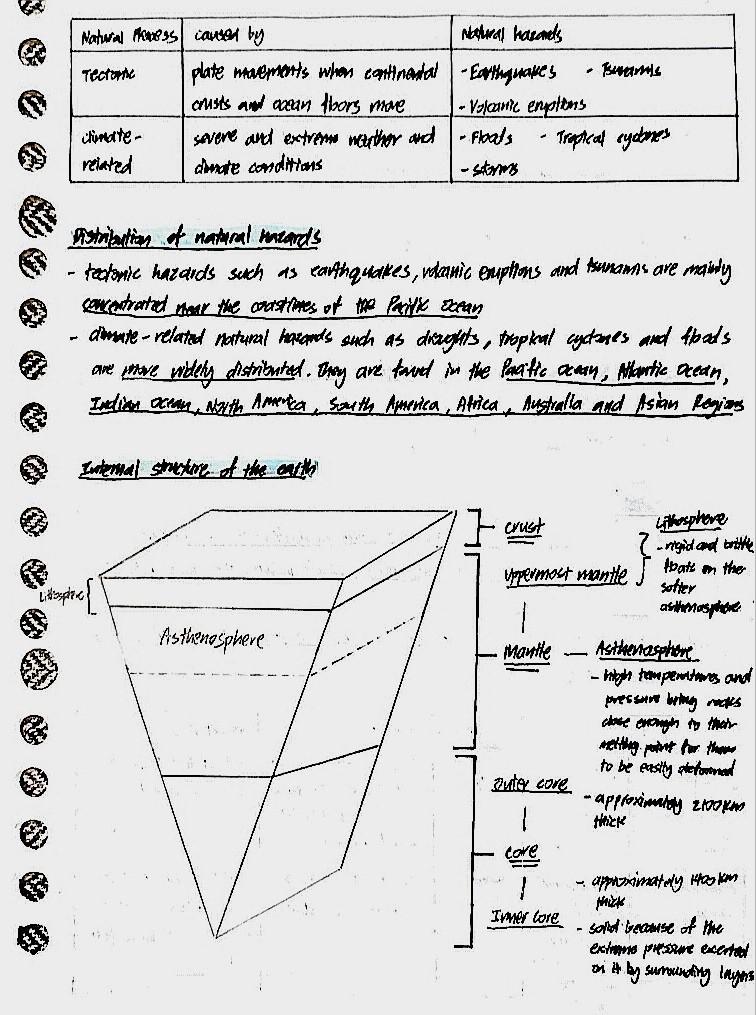 Natural Process caused by Natural hazards
Tectonic plate movements when continental - Earthquakes - Tsunamis
crusts and ocean floors move - Volcanic eruptions
climate- severe and extreme weather and - Floods - Tropical cyclones
related climate conditions - storms
Distribution of natural hazards
- tectonic hazards such as earthquakes, volcanic eruptions and tsunamis are mainly
concentrated near the coastlines of the Pacific Ocean
- climate-related natural hazards such as droughts, tropical cyclones and floods
are more widely distributed. They are found in the Pacific Ocean, Atlantic Ocean,
Indian Ocean, North America, South America, Africa, Australia and Asian Regions
Internal structure of the earth
crust
Lithosphere
- rigid and brittle
floats on the
softer
asthenosphere
uppermost mantle
Lithosphere
Asthenosphere
Mantle
Asthenosphere
- high temperatures and
pressure bring rocks
close enough to their
melting point for them
to be easily deformed
outer core
- approximately 2100km
thick
core
- approximately 1400km
thick
Inner core
- solid because of the
extreme pressure exerted
on it by surrounding layers